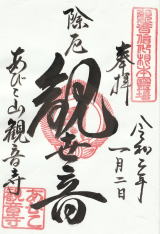 奉拝
令和二年
一月二日
除厄
観世音
あびこ山観音寺
あびこ
観音寺